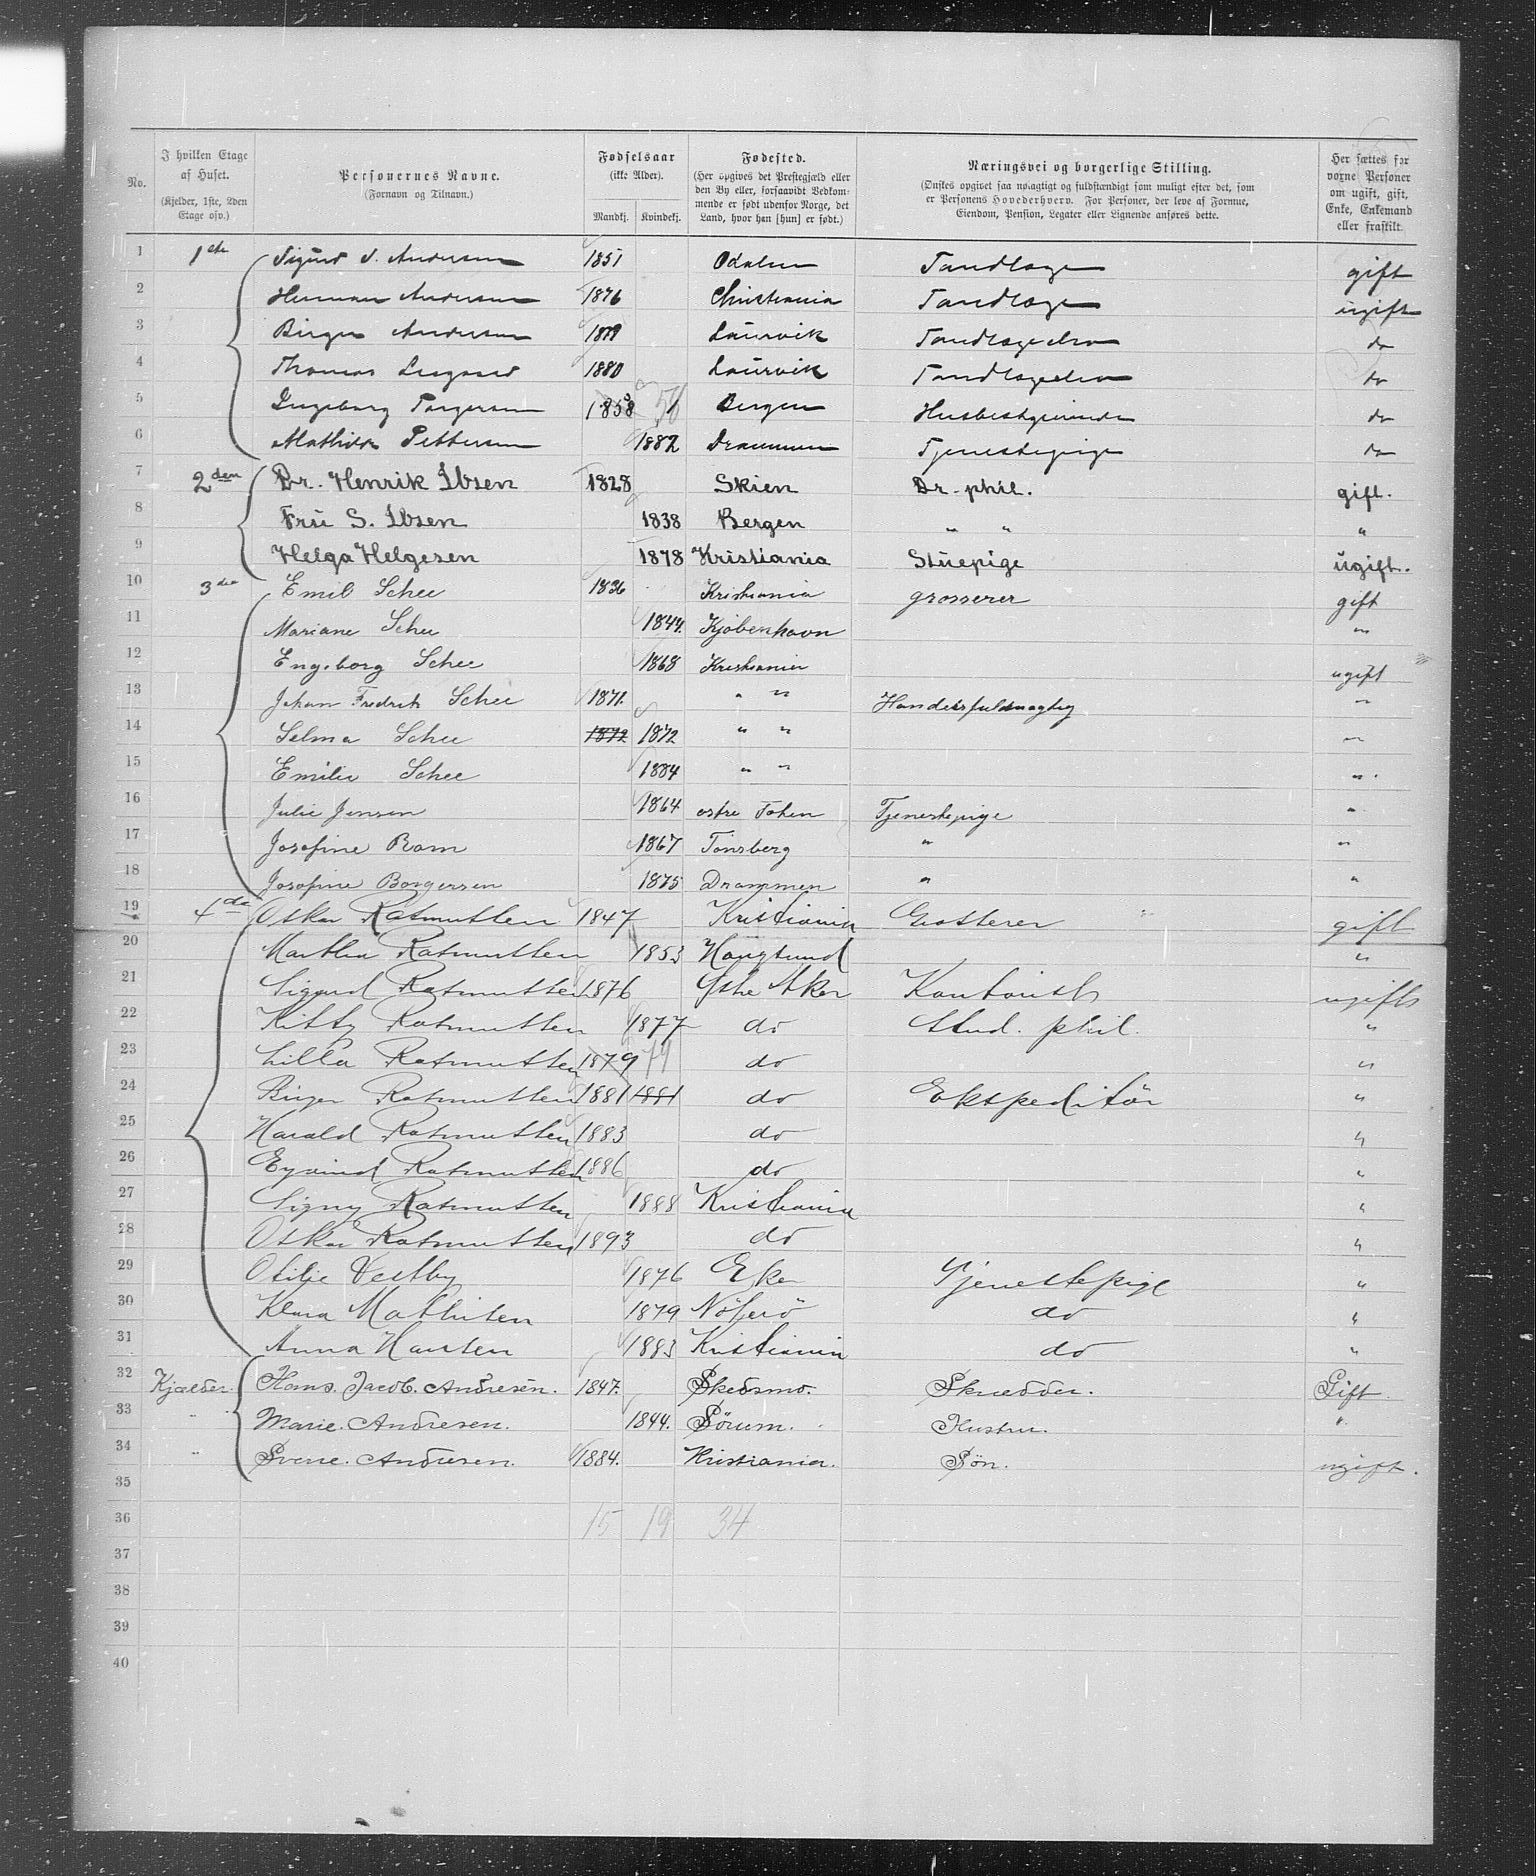 No.
I hvilken Etage af Huset.
(Kjelder, 1ste, 2den Etage osv.)
Personernes Navne.
(Fornavn og Tilnavn.)
Fødselsaar
(ikke Alder).
Mandkj. Kvindekj.
Fødested.
(Her opgives det Prestegjæld eller den By eller, forsaavidt Vedkommende er født udenfor Norge, det Land, hvor han [hun] er født.)
Næringsvei og borgerlige Stilling.
(Ønskes opgivet saa nøiagtigt og fuldstændigt som muligt efter det, som er Personens Hovederhverv. For Personer, der leve af Formue, Eiendom, Pension, Legater eller Lignende anføres dette.
Her sættes for voxne Personer om ugift, gift, Enke, Enkemand eller fraskilt.
1 1ste Sigurd Andersen 1851 Odalen Tandlæge gift
2 Herman Andersen 1876 Christiania Tandlæge ugift
3 Birger Andersen 1879 Laurvik Tandlægeelev do
4 Thomas 1880 Laurvik Tandlægeelev do
5 Ingeborg Torgersen 1858 58 Bergen Husbestyrerinde do
6 Mathilde Pettersen 1882 Drammen Tjenestepige do
7 2den Dr. Henrik Ibsen 1828 Skien Dr. phil. gift.
8 Fru S. Ibsen 1838 Bergen " " "
9 Helga Helgesen 1878 Kristiania Stuepige ugift.
10 3die Emil Schee 1836 Kristiania grosserer gift
11 Mariane Schee 1844. Kjøbenhavn "
12 Engeborg Schee 1868 Kristiania ugift
13 Johan Fredrik Schee 1871. " " Handelsfuldmægtig "
14 Selma Schee 1872 1872 " " "
15 Emilie Schee 1884 " " "
16 Julie Jensen 1864 østre Toten Tjenestepige "
17 Josefine Ram 1867 Tønsberg " "
18 Josefine Borgersen 1875 Drammen " "
19 4de Oskar Rasmussen 1847 Kristiania Grosserer gift
20 Martha Rasmussen 1853 Haugsund "
21 Sigurd Rasmussen 1876 Østre Aker Kontorist ugift
22 Kitty Rasmussen 1877 do Stud. phil. "
23 Lilla Rasmussen 1879 79 do "
24 Birger Rasmussen 1881 1881 do Ekspeditør "
25 Harald Rasmussen 1883 do "
26 Eyvind Rasmussen 1886 do "
27 Signy Rasmussen 1888 Kristiania "
28 Oskar Rasmussen 1893 do "
29 Otilie Vestby 1876 Eker Tjenestepige "
30 Klara Mathisen 1879 Nøtterø do "
31 Anna Hansen 1883 Kristiania do "
32 Kjælder. Hans. Jacob. Andresen. 1847. Skedsmo. Skrædder. Gift.
33 " Marie. Andresen. 1844. Sørum. Hustru. "
34 " Sverre. Andresen. 1884. Kristiania. Søn. ugift.
35
36 15 19 34
37
38
39
40